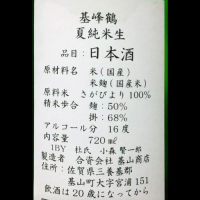 基峰鶴
夏純米生
品目:日本酒
原材料名 米(国産)
米麹(国産米)
原料米 さがびより100%
精米歩合 麹:50%
掛:68%
アルコール分 16度
内容量 720ml
1BY 杜氏 小森 賢一郎
製造者 合資会社 基山商店
住所:佐賀県三養基郡
基山町大字宮浦151
飲酒は20歳になってから